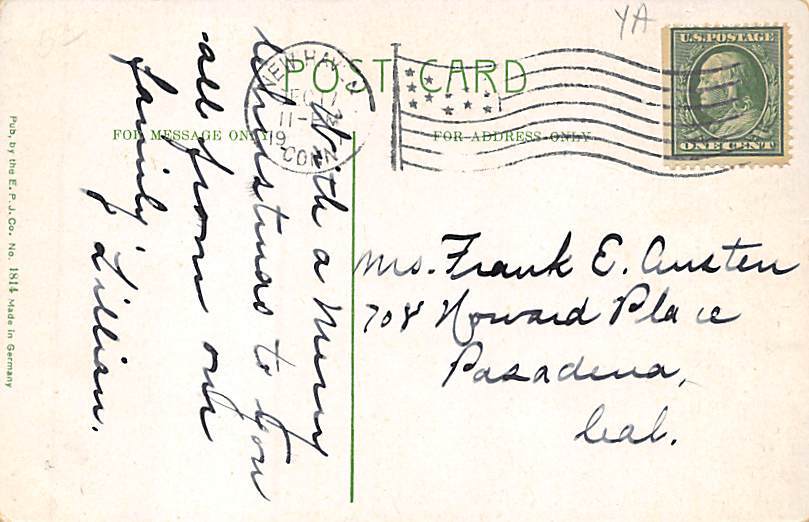 YA
POST CARD
U.S. POSTAGE
ONE CENT
NEW HAVEN
DEC 17
11-
19
CONN
FOR MESSAGE ONLY
FOR ADDRESS ONLY
With a Merry
Christmas to you
all from our
family
Lillian.
Mrs. Frank E. Austen
708 Howard Place
Pasadena,
Cal.
Pub. by the E. P. J. Co. No. 1814 Made in Germany